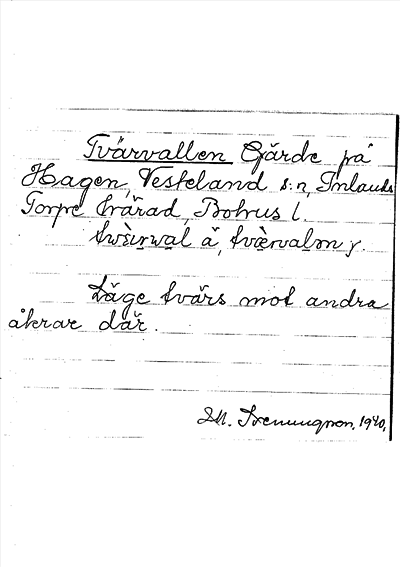 Tvärvallen Gärde på
Hagen, Vesteland s:n, Inlands
Torpe härad, Bohus l.
å,
Läge tvärs mot andra
åkrar där.
1940.